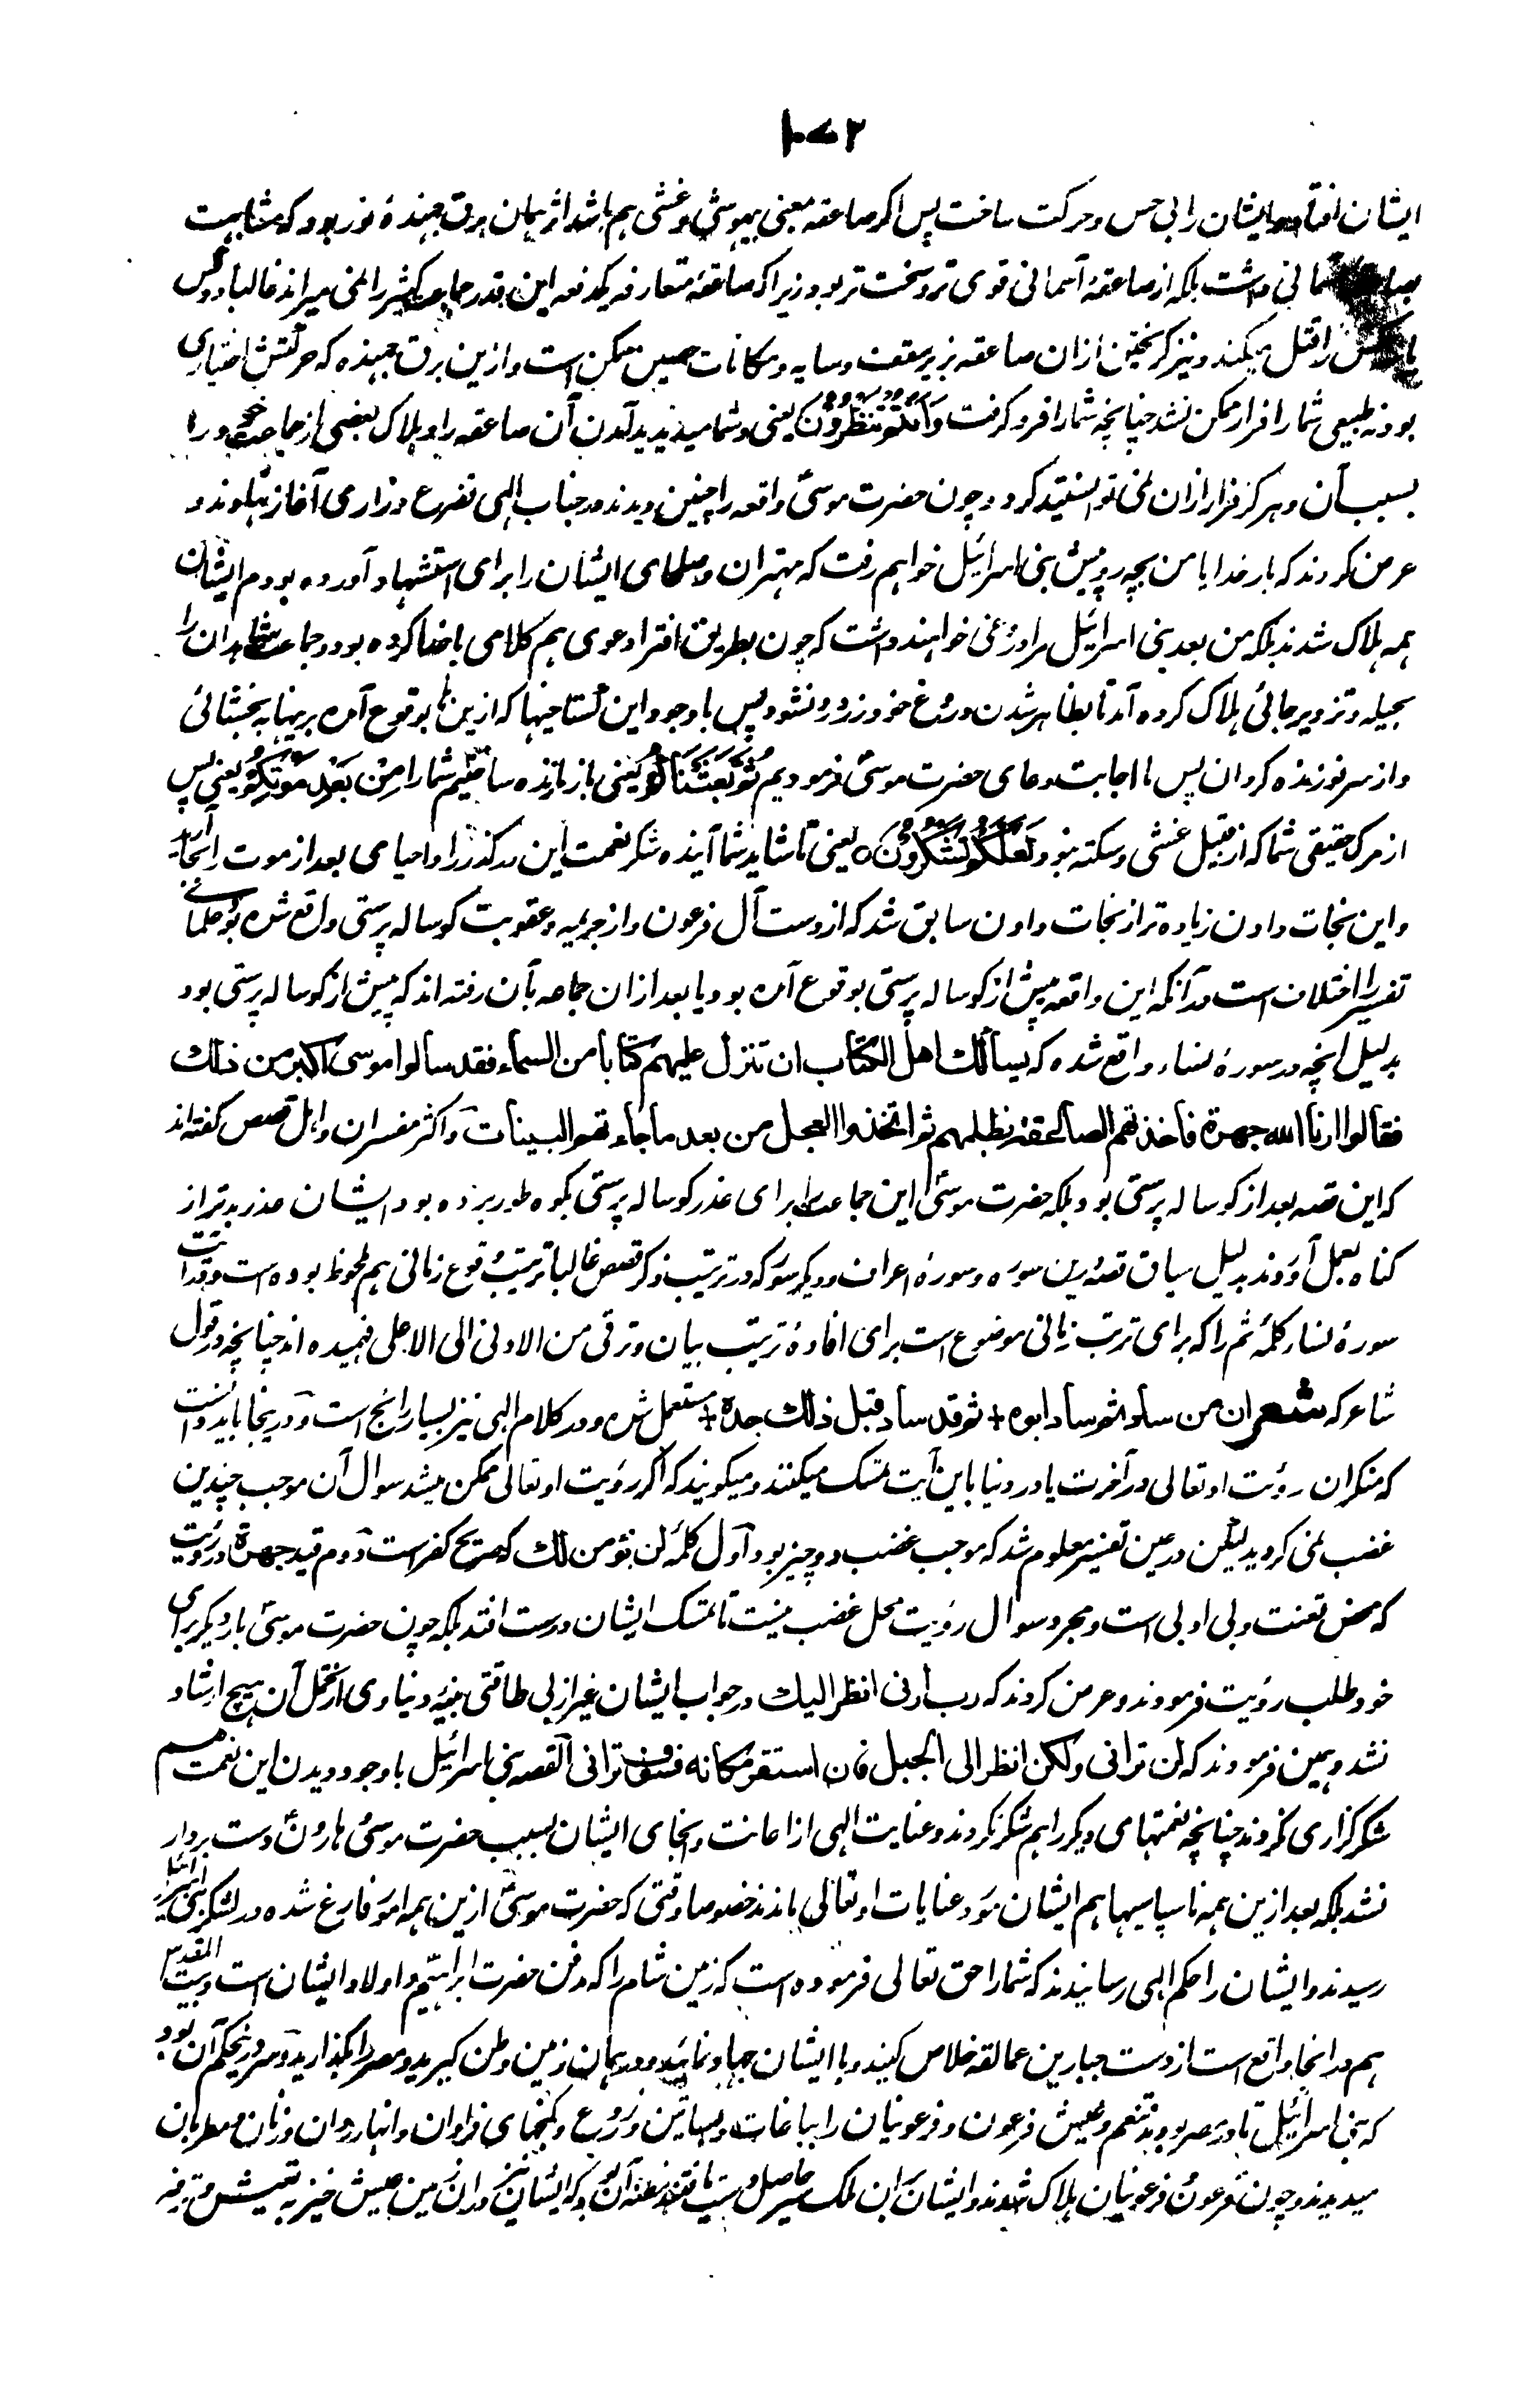 ایشان افتاد و ایشان را بی حس و حرکت ساخت پس اگر صاعقه معنی بیهوشی و غشی هم باشد اثر همان برق جهندهٔ نور بود که مشابهت
آسمانی داشت بلکه از صاعقهٔ آسمانی قوی تر و سخت تر بود زیرا که صاعقهٔ متعارفه یکدفعه این قدر جماعت کثیر را نمی میراند غالبا دو کس
را قتل میکند و نیز گریختن ازان صاعقه بزیر سقف و سایه و مکانات حصین ممکن است و ازین برق جهنده که حرکتش اختیاری
بود نه طبیعی شما را فرار ممکن نشد چنانچه شما را فرو گرفت وَاَنْتُمْ تَنْظُرُوْنَ یعنی و شما میدیدید آمدن آن صاعقه را و هلاک بعضی از جماعت خود را
بسبب آن و هرگز فرار ازان نمی توانستید کرد و چون حضرت موسیٰ واقعه را چنین دیدند در جناب الهی تضرع و زاری آغاز نهادند و
عرض کردند که بار خدایا من بچه رو پیش بنی اسرائیل خواهم رفت که مهتران و صلحای ایشان را برای استشهاد آورده بودم ایشان
همه هلاک شدند بلکه من بعد بنی اسرائیل مرا دروغی خواهند داشت که چون بطریق افترا دعوی هم کلامی با خدا کرده بود و جماعت شاهدان را
بحیله و تزویر جائی هلاک کرده آمد تا بظاهر شدن دروغ خود زرد رو نشود پس با وجود این گستاخیها که ازین ها بوقوع آمده برینها به بخشائی
و از سر نو زنده گردان پس ما اجابت دعای حضرت موسیٰ فرمودیم ثُمَّ بَعَثْنَاكُمْ یعنی باز زنده ساختیم شما را مِنْ بَعْدِ مَوْتِكُمْ یعنی پس
از مرگ حقیقی شما که از قبیل غشی و سکته نبود لَعَلَّكُمْ تَشْكُرُوْنَ یعنی تا شاید شما آینده شکر نعمت این درگذر را و احیای بعد از موت را بجا آرید
و این نجات دادن زیاده تر از نجات دادن سابق شد که از دست آل فرعون و از جریمه و عقوبت گوساله پرستی واقع شده بود علمای
تفسیر را اختلاف است در آنکه این واقعه پیش از گوساله پرستی بوقوع آمده بود یا بعد ازان جماعه بآن رفته اند که پیش از گوساله پرستی بود
بدلیل انچه در سورهٔ نساء واقع شده که یسألك اهل الکتاب ان تنزل علیهم کتابا من السماء فقد سألوا موسی اکبر من ذلك
فقالوا ارنا الله جهرة فأخذتهم الصاعقة بظلمهم ثم اتخذوا العجل من بعد ما جاءتهم البینات و اکثر مفسران و اهل قصص گفته اند
که این قصه بعد از گوساله پرستی بود بلکه حضرت موسیٰ این جماعت را برای عذر گوساله پرستی بکوه طور برده بود ایشان عذر بدتر از
گناه بعمل آوردند بدلیل سیاق قصه درین سوره و سورهٔ اعراف و دیگر سور که در ترتیب ذکر قصص غالبا ترتیب وقوع زمانی هم ملحوظ بوده است و در آیت
سورهٔ نساء کلمهٔ ثم را که برای ترتب زمانی موضوع است برای افادهٔ ترتیب بیان و ترقی من الادنی الی الاعلی فهمیده اند چنانچه در قول
شاعر که شعر ان من ساد ثم ساد ابوه + ثم قد ساد قبل ذلك جده + مستعمل شده و در کلام الهی نیز بسیار رائج است و درینجا باید دانست
که منکران رؤیت او تعالی در آخرت یا در دنیا باین آیت تمسک میکنند و میگویند که اگر رؤیت او تعالی ممکن میشد سوال آن موجب چندین
غضب نمی گردید لیکن در عین تفسیر معلوم شد که موجب غضب دو چیز بود اول کلمهٔ لن نؤمن لك که صریح کفر است دوم قید جهرة در رؤیت
که محض تعنت و بی ادبی است و مجرد سوال رؤیت محل غضب نیست تا تمسک ایشان درست افتد بلکه چون حضرت موسیٰ بار دیگر برای
خود طلب رؤیت فرمودند و عرض کردند که رب ارنی انظر الیك در جواب ایشان غیر از بی طاقتی بنیهٔ دنیاوی از تحمل آن هیچ ارشاد
نشد و همین فرمودند که لن ترانی ولکن انظر الی الجبل فان استقر مکانه فسوف ترانی القصه بنی اسرائیل با وجود دیدن این نعمت هم
شکرگزاری نکردند چنانچه نعمتهای دیگر را هم شکر نکردند و عنایت الهی از اعانت و انجای ایشان بسبب حضرت موسیٰ و هارونٔ دست بردار
نشد بلکه بعد ازین همه ناسپاسیها هم ایشان مورد عنایات او تعالی ماندند خصوصا وقتی که حضرت موسیٰ ازین همه امور فارغ شده در لشکر بنی اسرائیل
رسیدند و ایشان را حکم الهی رسانیدند که شما را حق تعالی فرموده است که زمین شام را که مدفن حضرت ابراهیم و اولاد ایشان است و بیت المقدس
هم در انجا واقع است از دست جبارین عمالقه خلاص کنید و با ایشان جهاد نمائید و در همان زمین وطن گیرید و مصر را بگذارید و سر درین حکم آن بود
که بنی اسرائیل تا در مصر بودند تنعم و عیش فرعون و فرعونیان را بباغات و بساتین و زروع و گنجهای فراوان و انهار روان و زنان و مطربان
میدیدند و چون فرعون و فرعونیان هلاک شدند و ایشان را آن ملک میسر و حاصل و دستیاب شد مظنه آن بود که ایشان نیز دران زمین عیش خیز به تعیش و ترفه